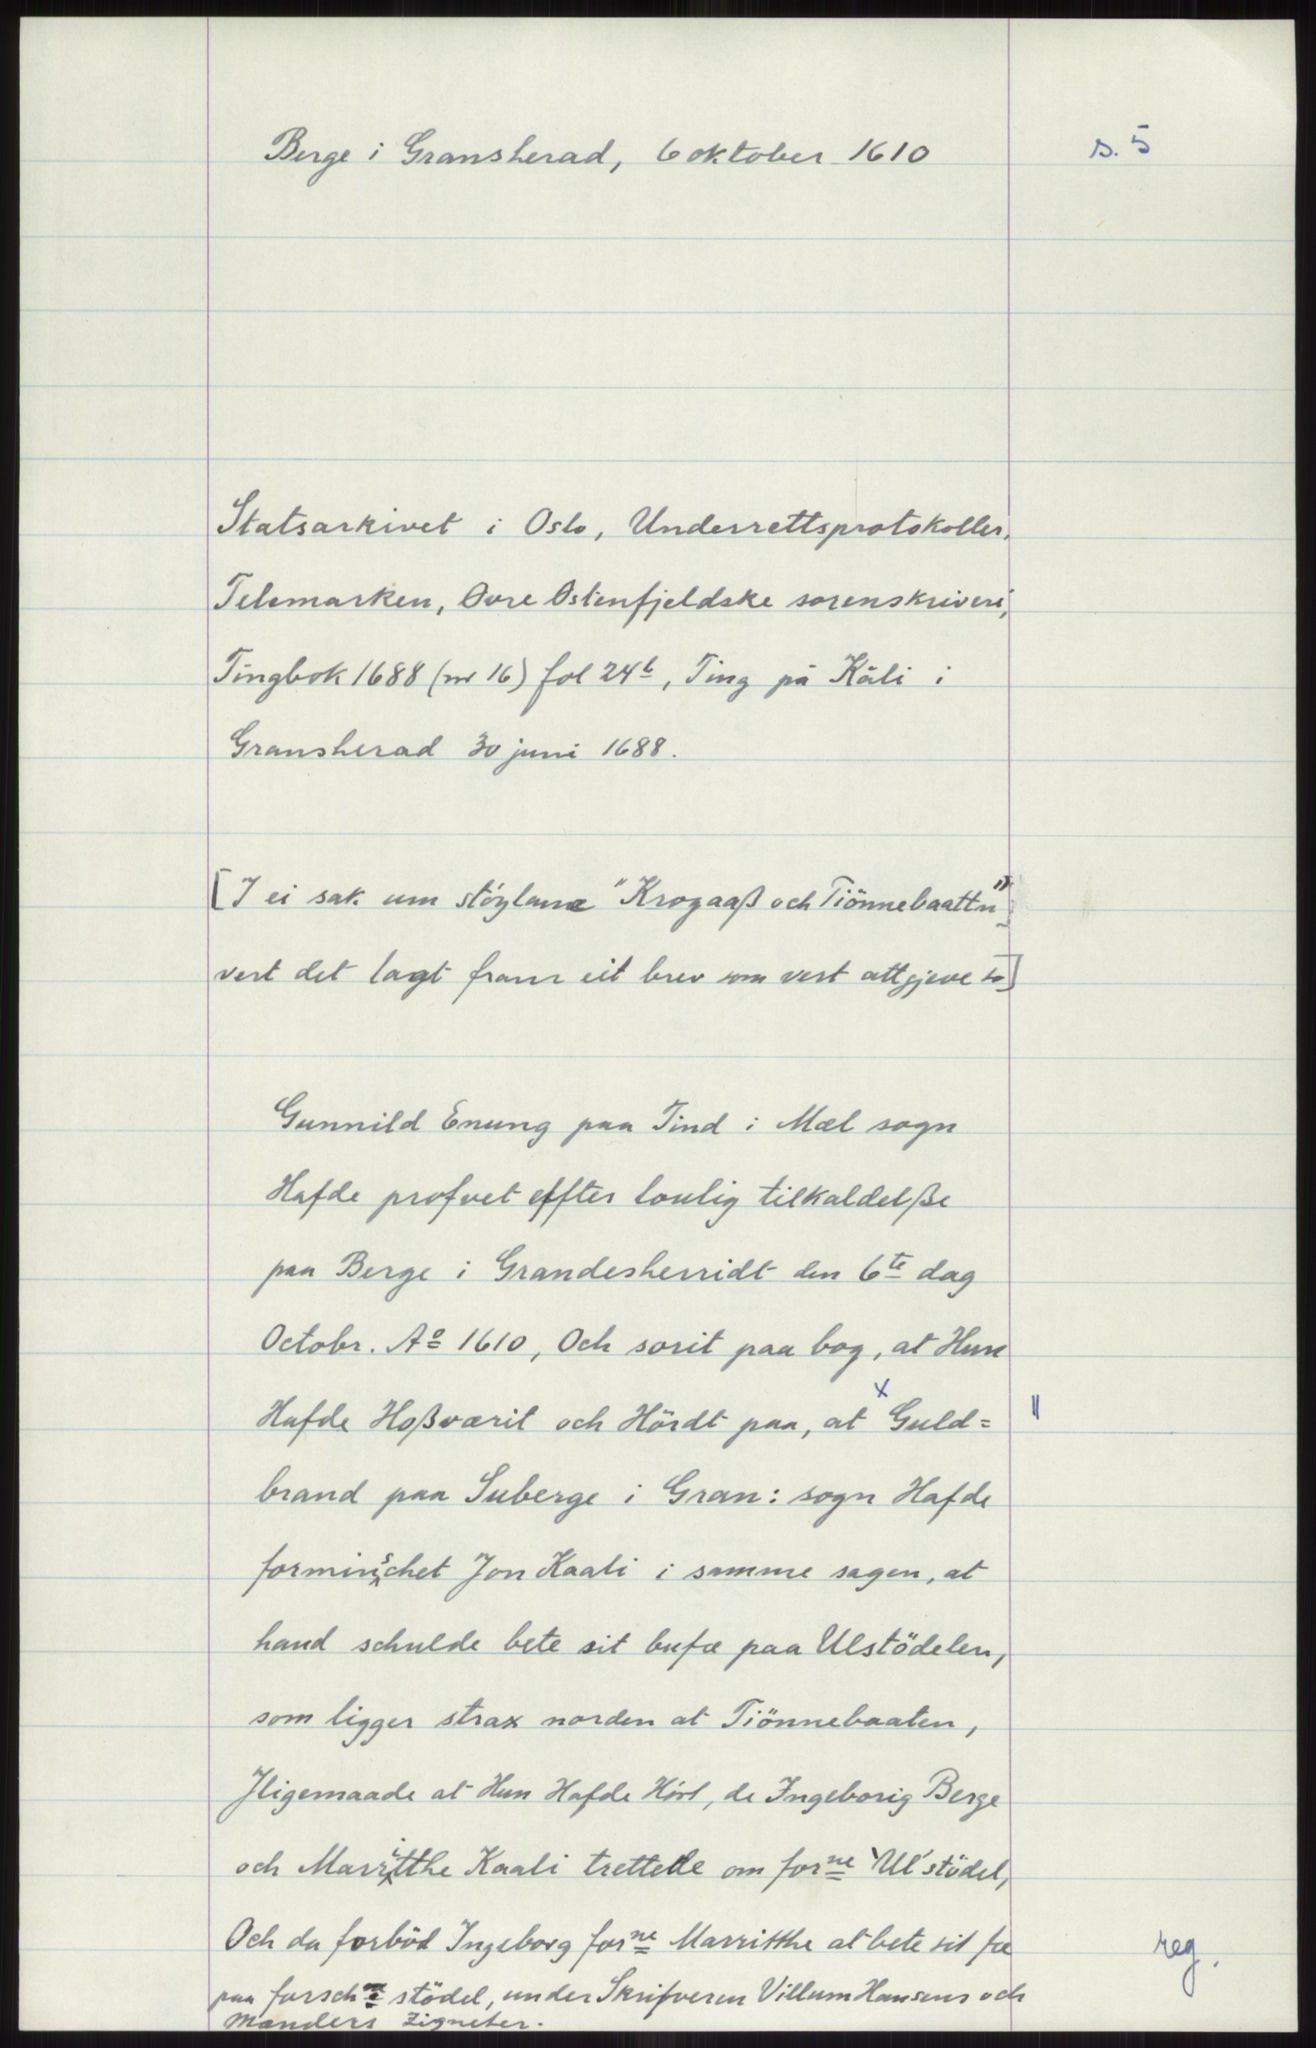 Berge i Gransherad, 6 oktober 1610
s. 5
Statsarkivet i Oslo, Underrettsprotokoller,
Telemarken, Øvre Østenfjeldske sorenskriveri,
Tingbok 1688 (nr 16) fol 24b, Ting på Kåli i
Gransherad 30 juni 1688.
[I ei sak um stöylane "Krogaaß och Tiönnebaattn"
vert det lagt fram eit brev som vert attgjeve so]
Gunnild Enung paa Tind i Mæl sogn
Hafde profvet effter loulig tilkaldelße
paa Berge i Grandesherridt den 6te dag
Octobr. Aº 1610, Och sorit paa bog, at Hun
Hafde Hoßværit och Hördt paa, at x Guld=
"
brand paa Suberge i Gran: sogn Hafde
forminschet Jon Kaali i samme sagen, at
hand schulde bete sit bufæ paa Ulstödelen,
som ligger strax norden at Tiönnebaaten,
Jligemaade at Hun Hafde Hört, de Ingeborig Berge
och Marritthe Kaali trettede om forne 'Ul'stödel,
Och da forböd Ingeborg forne Marritthe at bete sit fæ
reg.
paa forschne stödel, under Skrifveren Villum Hansens och
Mænders Zigneter.